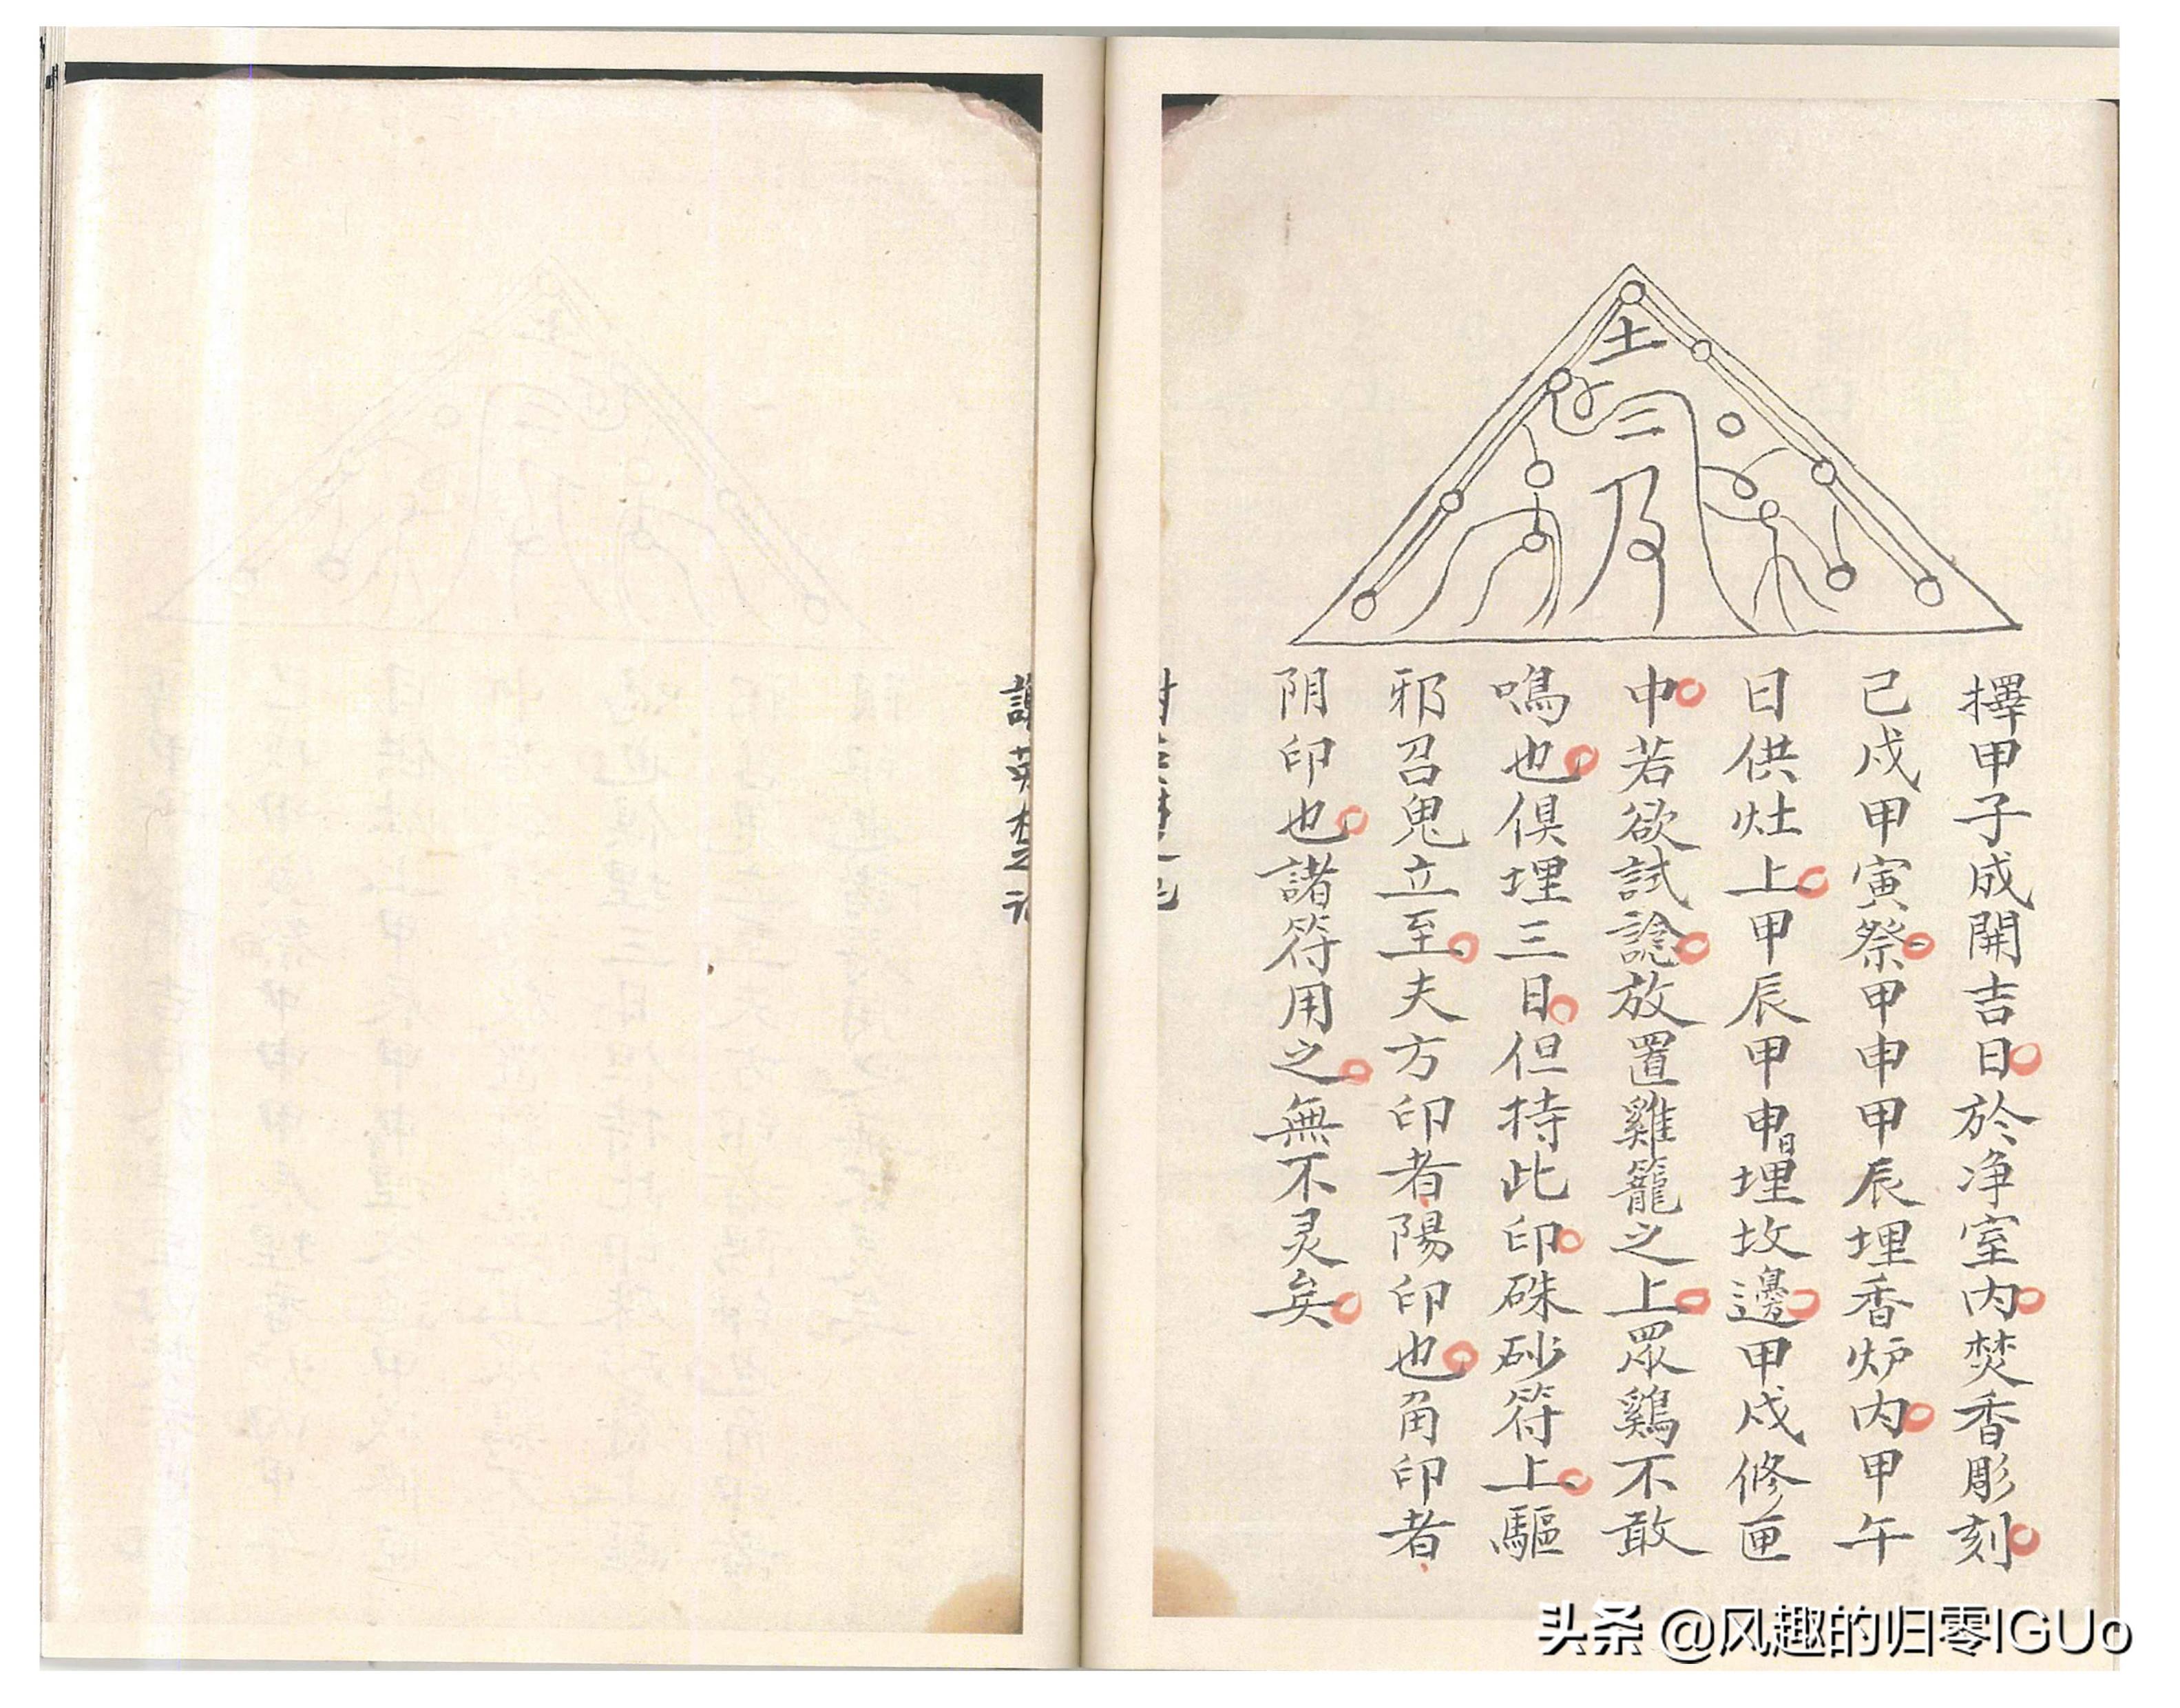 土
三
及
擇甲子成開吉日於净室内焚香彫刻
己戍甲寅祭甲申甲辰埋香炉内甲午
日供灶上甲辰甲申日埋坟邊甲戍修匣
中若欲試諗放置雞籠之上眾鷄不敢
鳴也俱埋三日但持此印硃砂符上驅
邪召鬼立至夫方印者陽印也角印者
阴印也諸符用之無不灵矣
头条 @风趣的归零IGUo